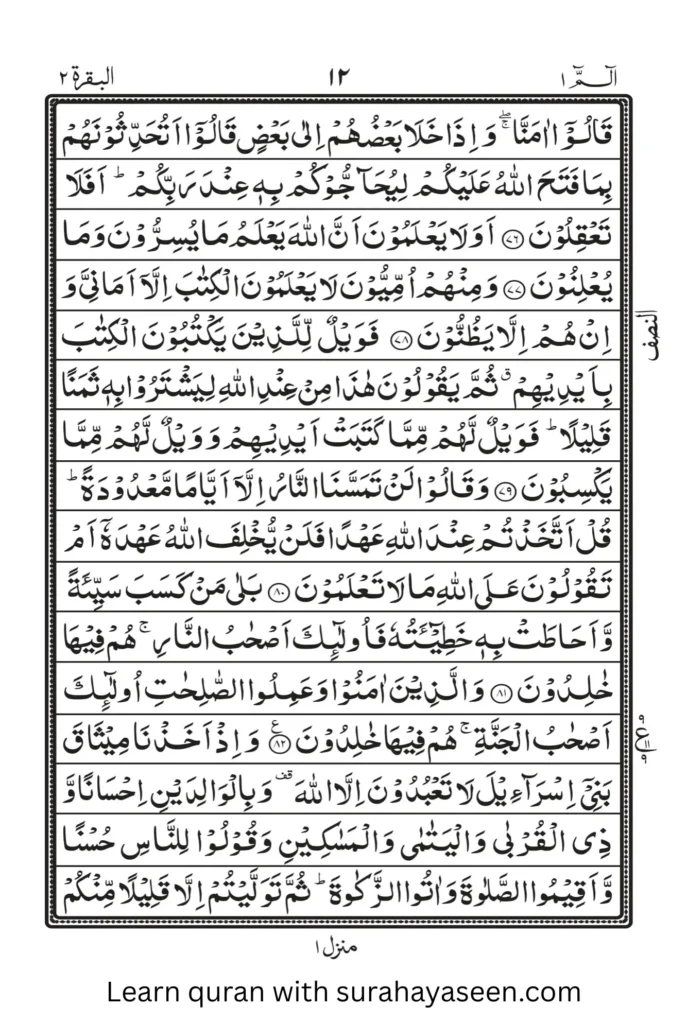 الٓـمّٓ ١ ١٢ البقرة ٢
قَالُوْۤا اٰمَنَّا ۖۚ وَ اِذَا خَلَا بَعْضُهُمْ اِلٰى بَعْضٍ قَالُوْۤا اَتُحَدِّثُوْنَهُمْ
بِمَا فَتَحَ اللّٰهُ عَلَيْكُمْ لِيُحَآجُّوْكُمْ بِهٖ عِنْدَ رَبِّكُمْ ؕ اَفَلَا
تَعْقِلُوْنَ ﴿۷۶﴾ اَوَ لَا يَعْلَمُوْنَ اَنَّ اللّٰهَ يَعْلَمُ مَا يُسِرُّوْنَ وَ مَا
يُعْلِنُوْنَ ﴿۷۷﴾ وَ مِنْهُمْ اُمِّيُّوْنَ لَا يَعْلَمُوْنَ الْكِتٰبَ اِلَّاۤ اَمَانِيَّ وَ
اِنْ هُمْ اِلَّا يَظُنُّوْنَ ﴿۷۸﴾ فَوَيْلٌ لِّلَّذِيْنَ يَكْتُبُوْنَ الْكِتٰبَ
النصف
بِاَيْدِيْهِمْ ۗ ثُمَّ يَقُوْلُوْنَ هٰذَا مِنْ عِنْدِ اللّٰهِ لِيَشْتَرُوْا بِهٖ ثَمَنًا
قَلِيْلًا ؕ فَوَيْلٌ لَّهُمْ مِّمَّا كَتَبَتْ اَيْدِيْهِمْ وَ وَيْلٌ لَّهُمْ مِّمَّا
يَكْسِبُوْنَ ﴿۷۹﴾ وَ قَالُوْا لَنْ تَمَسَّنَا النَّارُ اِلَّاۤ اَيَّامًا مَّعْدُوْدَةً ؕ
قُلْ اَتَّخَذْتُمْ عِنْدَ اللّٰهِ عَهْدًا فَلَنْ يُّخْلِفَ اللّٰهُ عَهْدَهٗۤ اَمْ
تَقُوْلُوْنَ عَلَى اللّٰهِ مَا لَا تَعْلَمُوْنَ ﴿۸۰﴾ بَلٰى مَنْ كَسَبَ سَيِّئَةً
وَّ اَحَاطَتْ بِهٖ خَطِيْٓـَٔتُهٗ فَاُولٰٓئِكَ اَصْحٰبُ النَّارِ ۚ هُمْ فِيْهَا
خٰلِدُوْنَ ﴿۸۱﴾ وَ الَّذِيْنَ اٰمَنُوْا وَ عَمِلُوا الصّٰلِحٰتِ اُولٰٓئِكَ
اَصْحٰبُ الْجَنَّةِ ۚ هُمْ فِيْهَا خٰلِدُوْنَ ﴿۸۲﴾ع وَ اِذْ اَخَذْنَا مِيْثَاقَ
بَنِيْۤ اِسْرَآءِيْلَ لَا تَعْبُدُوْنَ اِلَّا اللّٰهَ قف وَ بِالْوَالِدَيْنِ اِحْسَانًا وَّ
ذِي الْقُرْبٰى وَ الْيَتٰمٰى وَ الْمَسٰكِيْنِ وَ قُوْلُوْا لِلنَّاسِ حُسْنًا
وَّ اَقِيْمُوا الصَّلٰوةَ وَ اٰتُوا الزَّكٰوةَ ؕ ثُمَّ تَوَلَّيْتُمْ اِلَّا قَلِيْلًا مِّنْكُمْ
منزل ١
Learn quran with surahayaseen.com